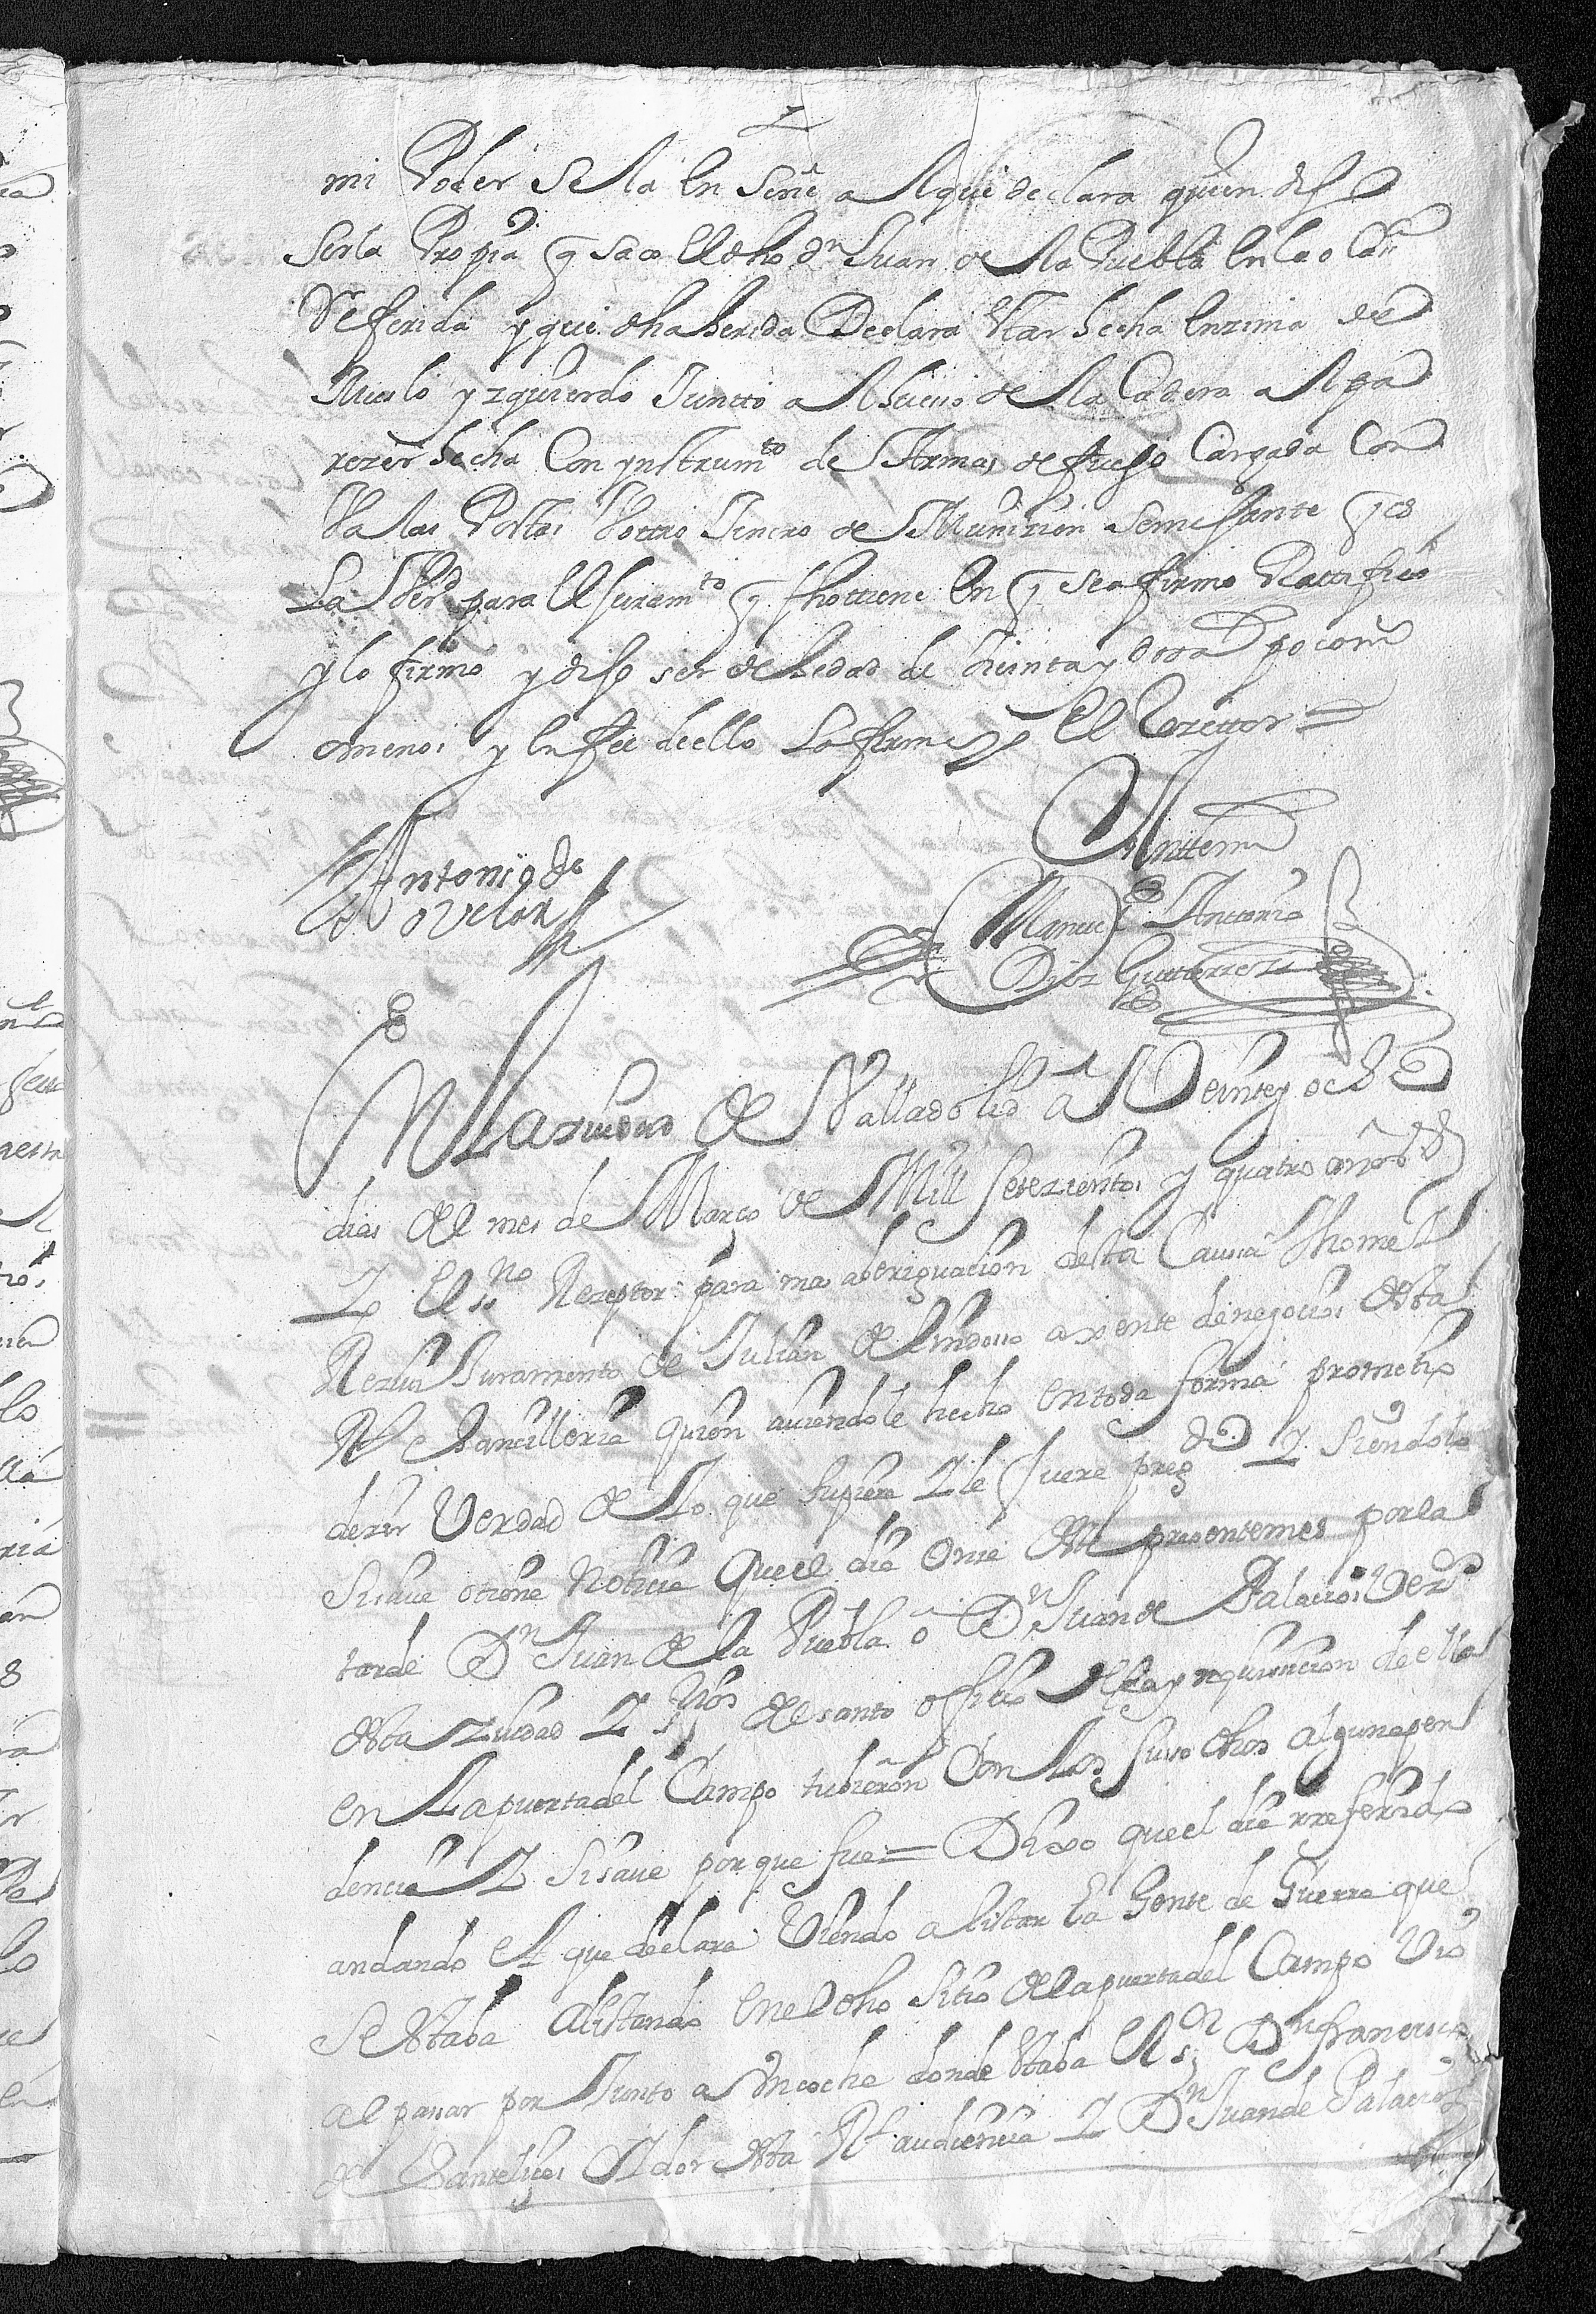 mi Poder se la enseñe al que declara quien dijo
ser la Propia q saco el dho Dn Juan de la Puebla en la ocasn
Referida y que dha herida Declara estar hecha enzima del
Muslo yzquierdo Juntto al hueso de la Cadera al pa
rezer hecha Con ynstrumto de Armas de fuego Cargada Con
Valas Postas U ottro Jenero de Munizion semejante q es
La Verd para el juramto q fho ttiene en q se afirmo Ratifico
y lo firmo y dijo ser de hedad de treinta y dos as poco m
o menos y en fee dello Lo firme yo el Rezeptor =
Antonio de
Ovelar
Anttemi
Manuel Antonio
Diez Gutierrez
En La ziudad de Valladolid a Veinte y ocho
dias del mes de Março de Mill Setezientos y quatro años
Yo el ssno Rezeptor para mas aberiguacion desta Caussa thome
Rezevi Juramento de Julian de axente de negocios desta
Rl Chancilleria quien auiendole hecho en toda forma prometio
dezir Verdad de Lo que supiere Y le fuere pregdo Y Siendolo
Si saue o tiene Noticia Que el dia Once deste presente mes por la
tarde Dn Juan de la Puebla o Dn Juan de Palacios Vezo
desta ziudad Y del santo officio de la ynquisicion de ella
en La puerta del Campo tubieron Con Los suso dhos alguna pen
dencia Y Si saue por que fue = Dixo que el dia rreferido
andando el que declara Viendo alistar la Gente de Guerra que
se estaba alistando en el dho sitio de la puerta del Campo Vio
al pasar por Junto a Un coche donde estaba el sr Dn francisco
de oydor desta Rl audiencia Y Dn Juan de Palacios